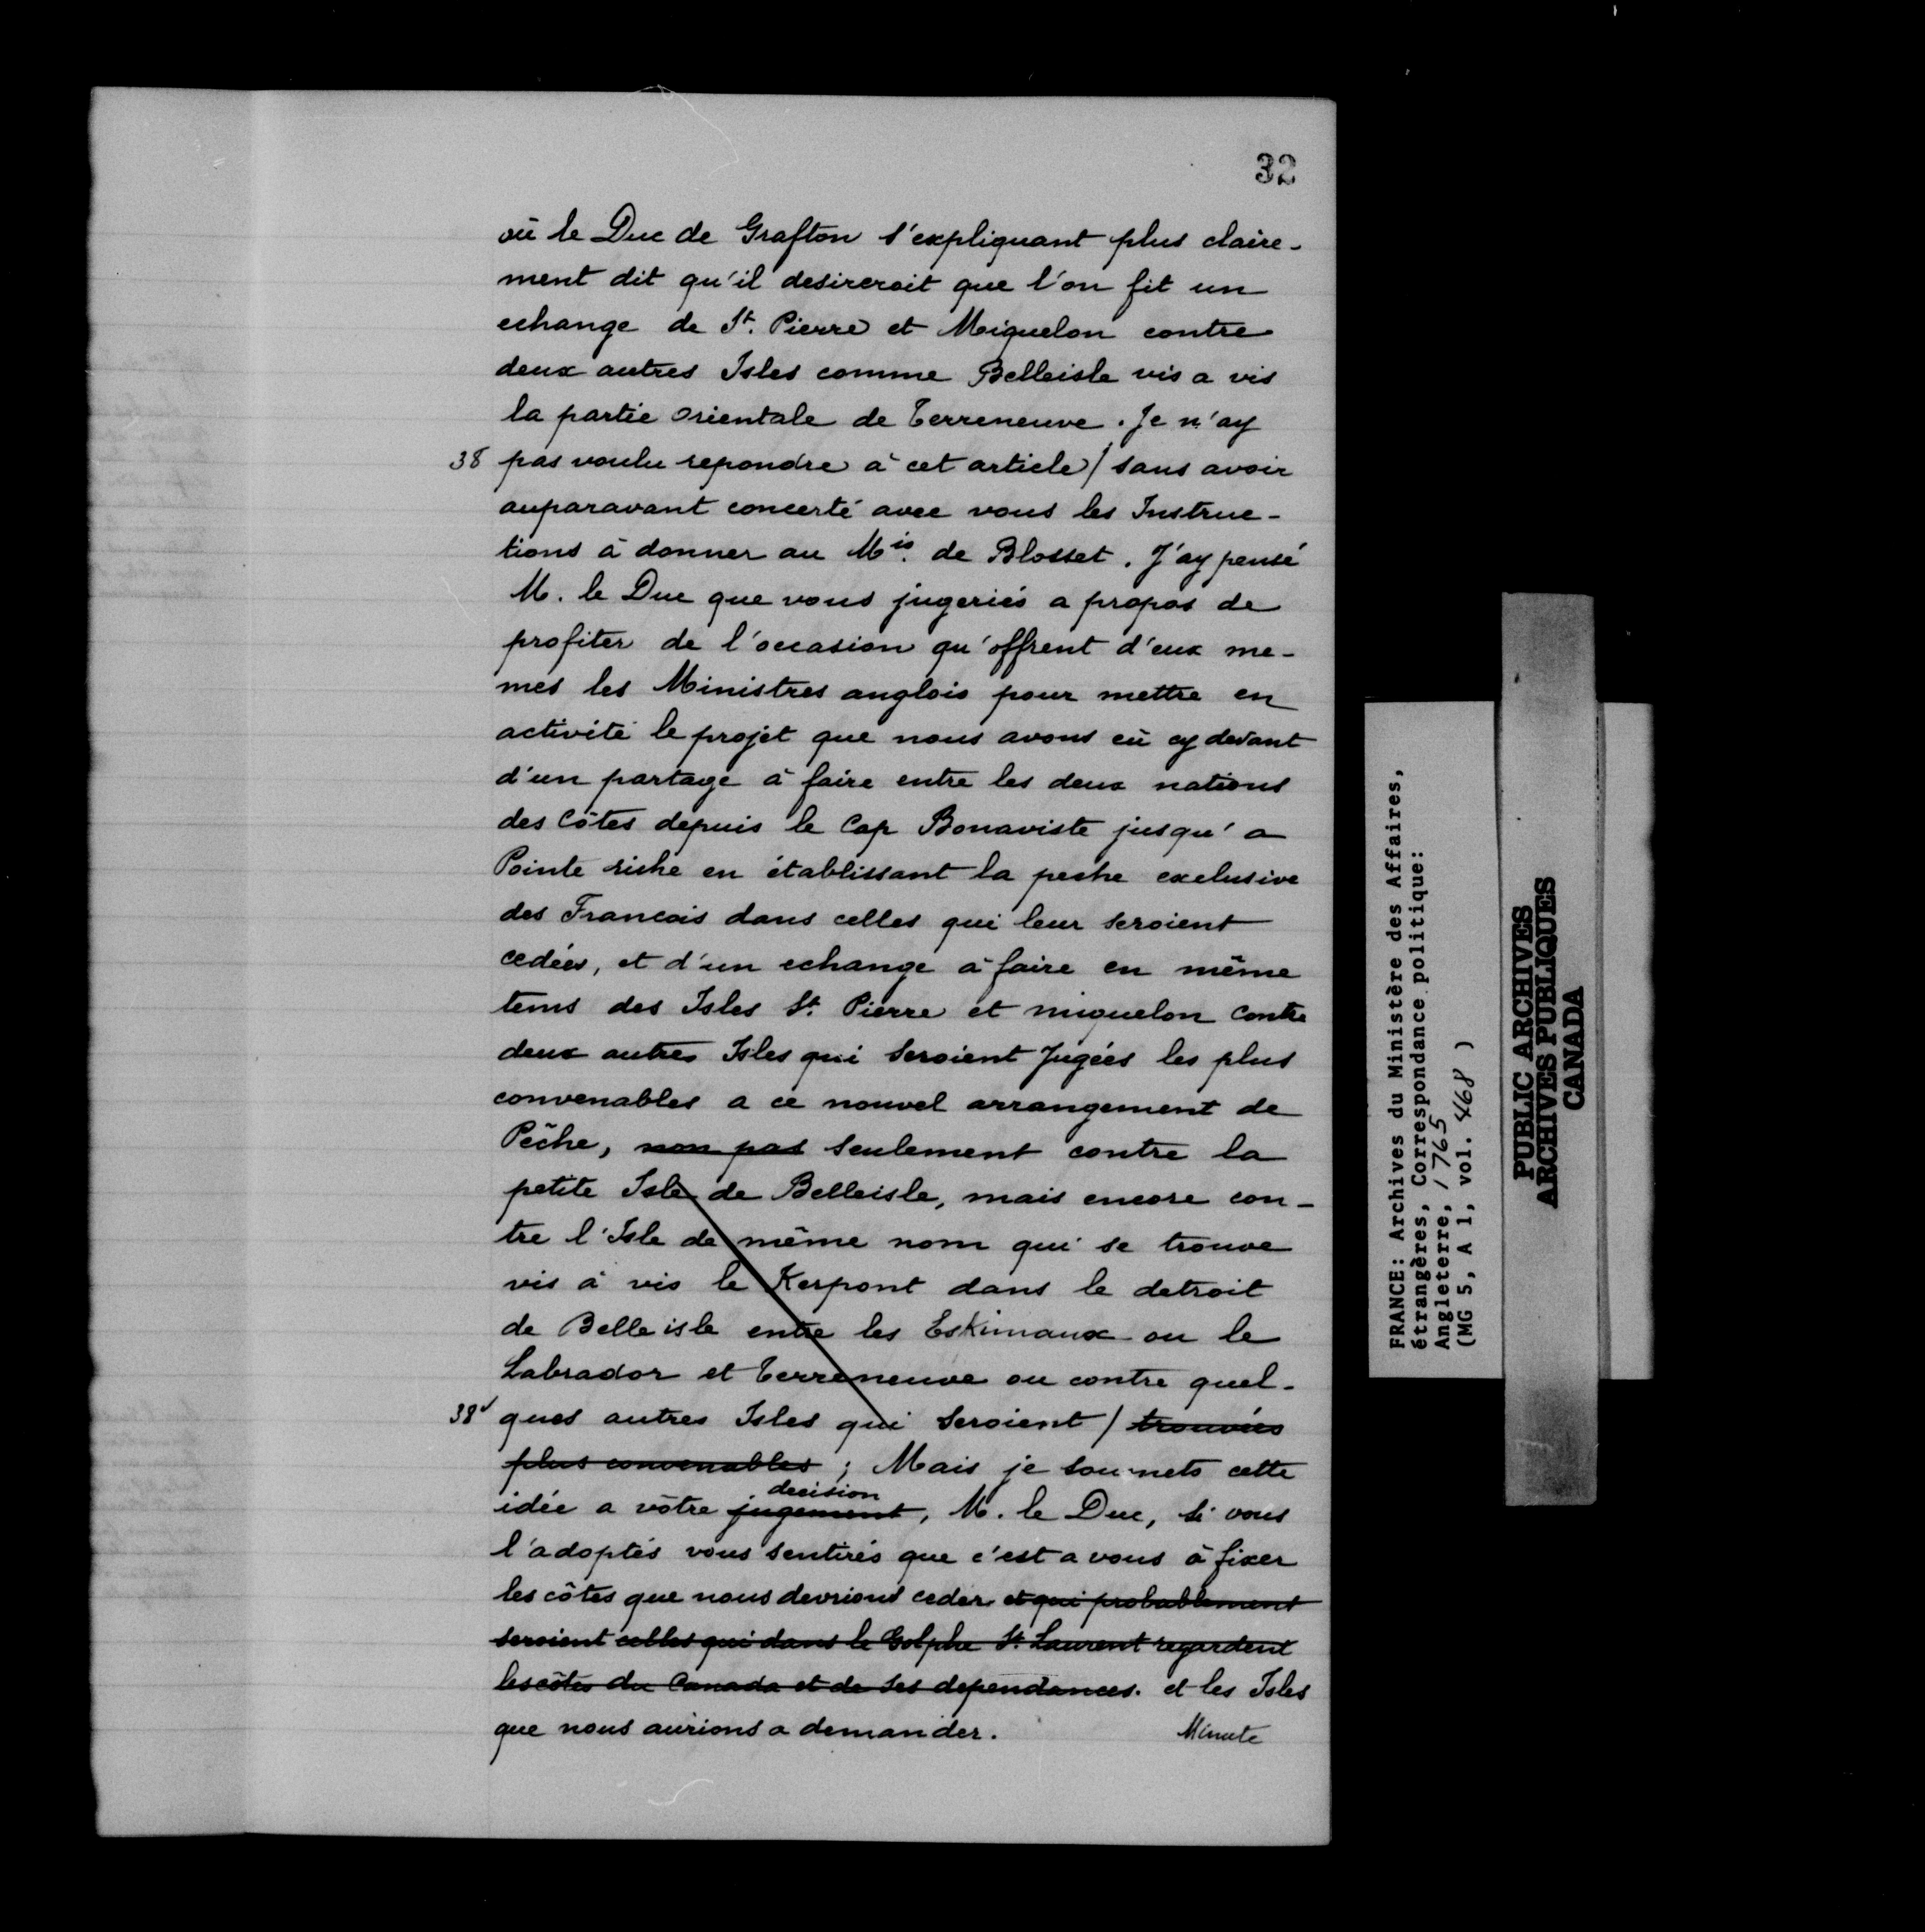 32
où le Duc de Grafton s'expliquant plus claire-
ment dit qu'il desireroit que l'on fit un
echange de St. Pierre et Miquelon contre
deux autres Isles comme Belleisle vis a vis
la partie orientale de Terreneuve. Je n'ay
38 pas voulu repondre à cet article / sans avoir
auparavant concerté avec vous les Instruc-
tions à donner au Mis. de Blosset. J'ay pensé
M. le Duc que vous jugeriés a propos de
profiter de l'occasion qu'offrent d'eux me-
mes les Ministres anglois pour mettre en
activité le projet que nous avons eû cy devant
d'un partage à faire entre les deux nations
des Côtes depuis le Cap Bonaviste jusqu'a
Pointe riche en établissant la peche exclusive
des Francois dans celles qui leur seroient
cedées, et d'un echange à faire en même
tems des Isles St. Pierre et miquelon contre
deux autres Isles qui seroient Jugées les plus
convenables a ce nouvel arrangement de
Pêche, non pas seulement contre la
petite Isle de Belleisle, mais encore con-
tre l'Isle de même nom qui se trouve
vis à vis le Kerpont dans le detroit
de Belle isle entre les Eskimaux ou le
Labrador et Terreneuve ou contre quel-
38v ques autres Isles qui seroient / trouvées
plus convenables ; Mais je soumets cette
decision
idée a vôtre jugement, M. le Duc, si vous
l'adoptés vous sentirés que c'est a vous à fixer
les côtes que nous devrions ceder et qui probablement
seroient celles qui dans le Golphe St. Laurent regardent
les côtes du Canada et de ses dependances. et les Isles
que nous aurions a demander. Minute
FRANCE: Archives du Ministère des Affaires,
étrangères, Correspondance politique:
Angleterre, 1765
(MG 5, A 1, vol. 468 )
PUBLIC ARCHIVES
ARCHIVES PUBLIQUES
CANADA